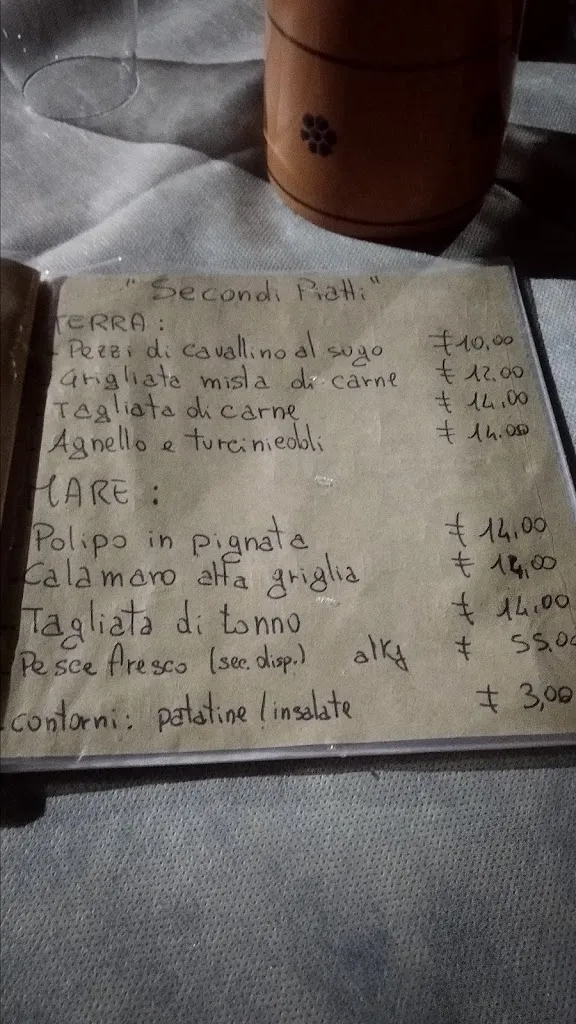 "Secondi Piatti"
TERRA:
- Pezzi di cavallino al sugo € 10,00
Grigliata mista di carne € 12,00
Tagliata di carne € 14,00
Agnello e turcinieobli € 14,00
MARE:
Polipo in pignata € 14,00
Calamaro alla griglia € 14,00
Tagliata di tonno € 14,00
Pesce fresco (sec. disp.) al Kg € 55,00
contorni: patatine / insalate € 3,00